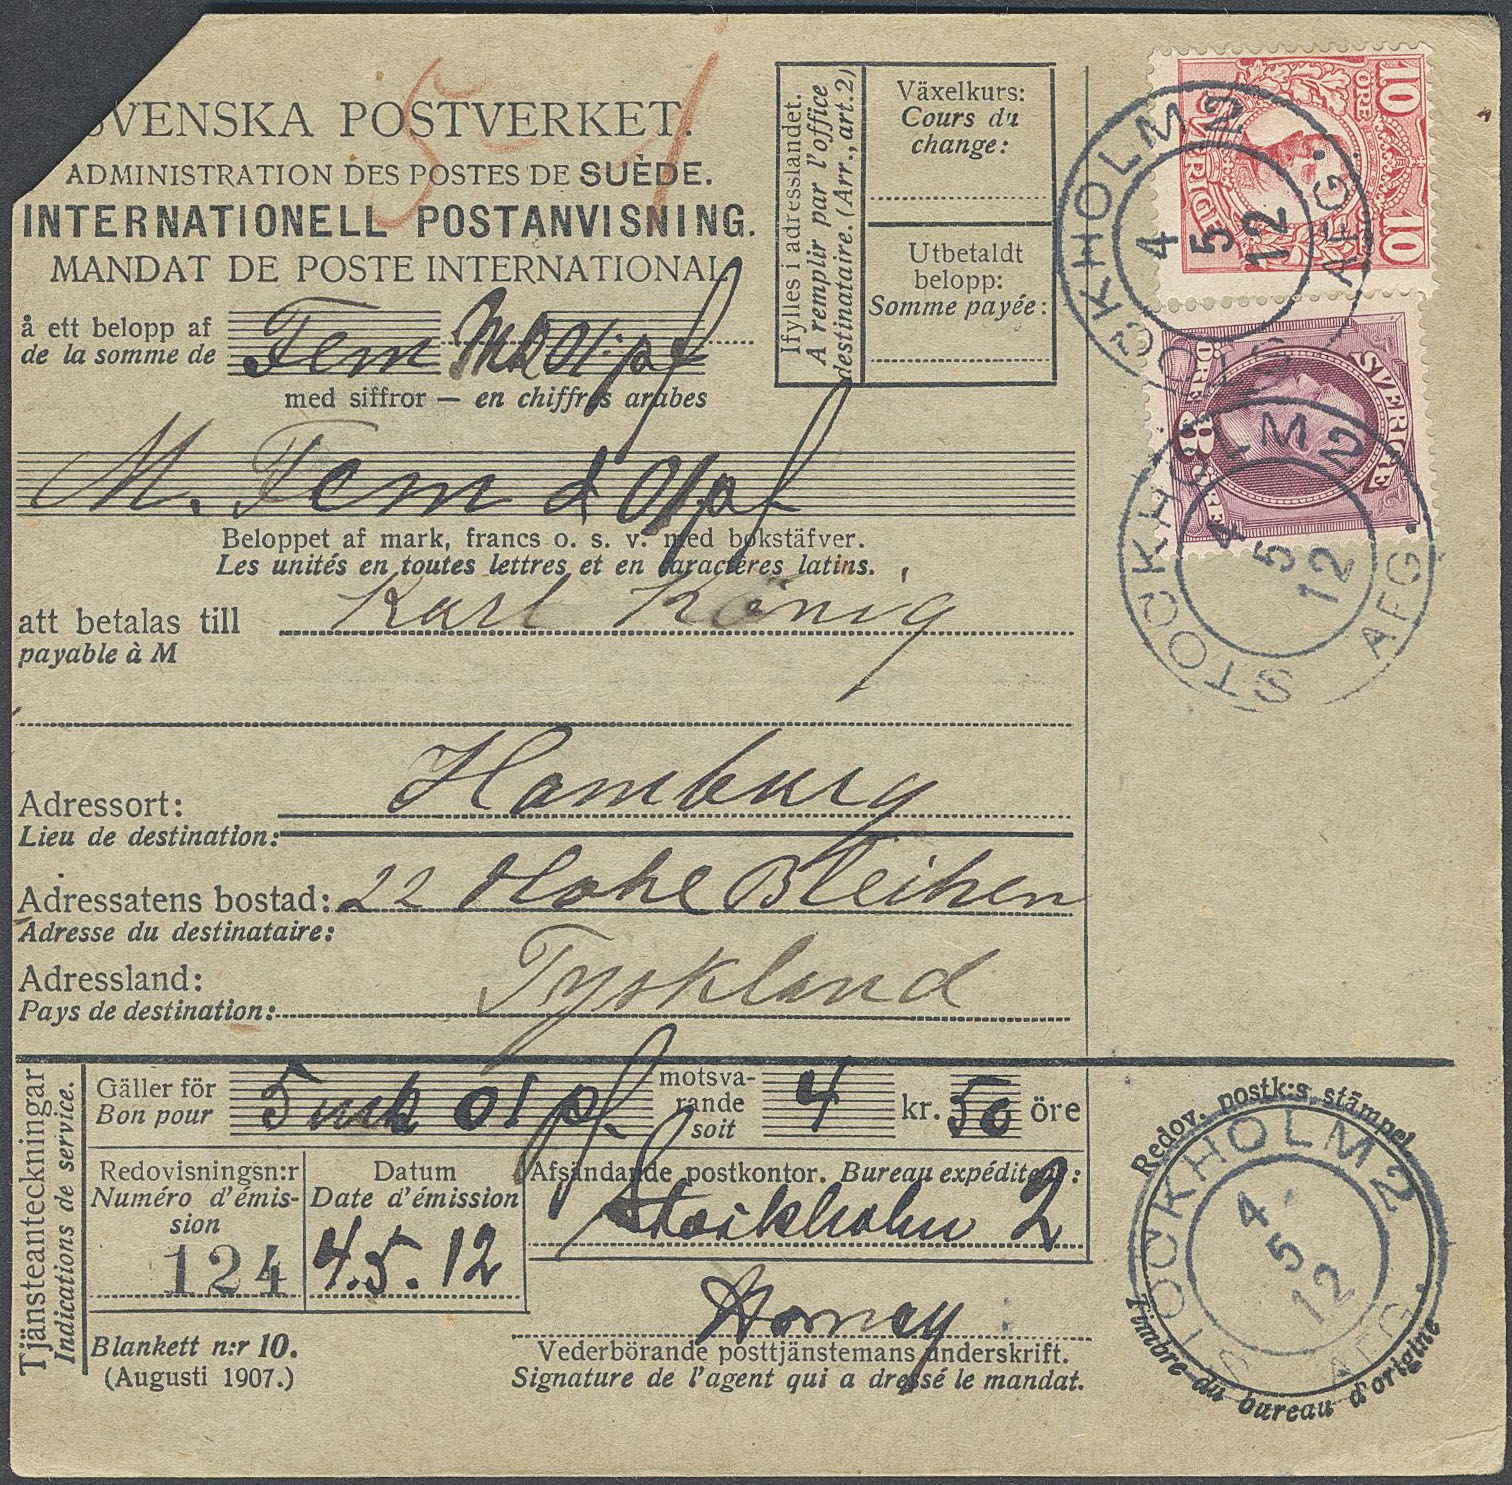 SVENSKA POSTVERKET.
ADMINISTRATION DES POSTES DE SUÈDE.
INTERNATIONELL POSTANVISNING.
MANDAT DE POSTE INTERNATIONAL
å ett belopp af
de la somme de
Fem Mk 01 pf
med siffror — en chiffres arabes
M. Fem & 01 pf
Beloppet af mark, francs o. s. v. med bokstäfver.
Les unités en toutes lettres et en caractères latins.
att betalas till
payable à M
Karl König
Adressort:
Lieu de destination:
Hamburg
Adressatens bostad:
Adresse du destinataire:
22 Hohe Bleihen
Adressland:
Pays de destination:
Tyskland
Ifylles i adresslandet.
A remplir par l'office
destinataire. (Arr., art. 2)
Växelkurs:
Cours du
change:
Utbetaldt
belopp:
Somme payée:
10 ÖRE 10
SVERIGE
STOCKHOLM 2
4
5
12
AFG.
SVERIGE
ÖRE 8 ÖRE
STOCKHOLM 2
4
5
12
AFG.
Tjänsteanteckningar
Indications de service.
Gäller för
Bon pour
5 mk 01 pf.
motsva-
rande
soit
4 kr. 50 öre
Redovisningsn:r
Numéro d'émis-
sion
124
Datum
Date d'émission
4.5.12
Afsändande postkontor. Bureau expéditeur:
Stockholm 2
Blankett n:r 10.
(Augusti 1907.)
Vederbörande posttjänstemans underskrift.
Signature de l'agent qui a dressé le mandat.
Redov. postk:s stämpel
STOCKHOLM 2
4
5
12
AFG.
Timbre du bureau d'origine